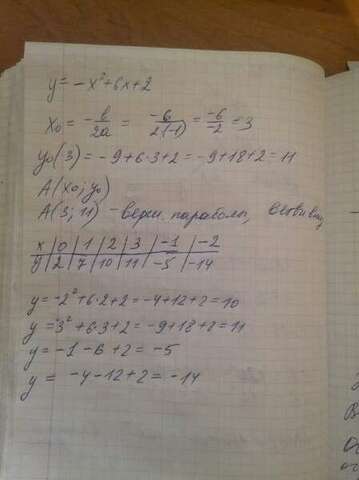 y = -x² + 6x + 2
x₀ = -b/2a = -6/2(-1) = -6/-2 = 3
y₀(3) = -9 + 6·3 + 2 = -9 + 18 + 2 = 11
A(x₀; y₀)
A(3; 11) - верш. параболы, ветви вниз
x | 0 | 1 | 2 | 3 | -1 | -2
y | 2 | 7 | 10 | 11 | -5 | -14
y = -2² + 6·2 + 2 = -4 + 12 + 2 = 10
y = 3² + 6·3 + 2 = -9 + 18 + 2 = 11
y = -1 - 6 + 2 = -5
y = -4 - 12 + 2 = -14